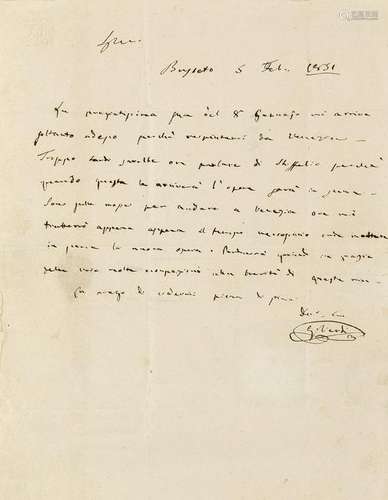 Busseto 5 Feb. 1851
La pregiatissima sua del 8 Gennajo mi arriva
soltanto adesso perchè respintami da Venezia
Troppo tardi sarebbe ora parlare di Stiffelio perchè
quando questa le arriverà l'opera sarà in scena
Sono sulle mosse per andare a Venezia ove mi
appena appena il tempo necessario onde mettere
in scena la nuova opera. Perdonerà quindi in grazia
delle mie molte occupazioni alla brevità di questa mia
La prego di credermi pieno di stima
G. Verdi